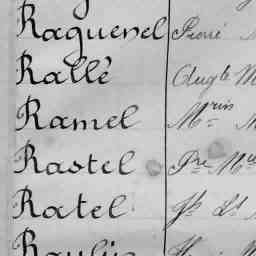 Raguenel Pierre
Rallé Aug.te M
Ramel M.rin M
Rastel P.re M
Ratel J.h L.s